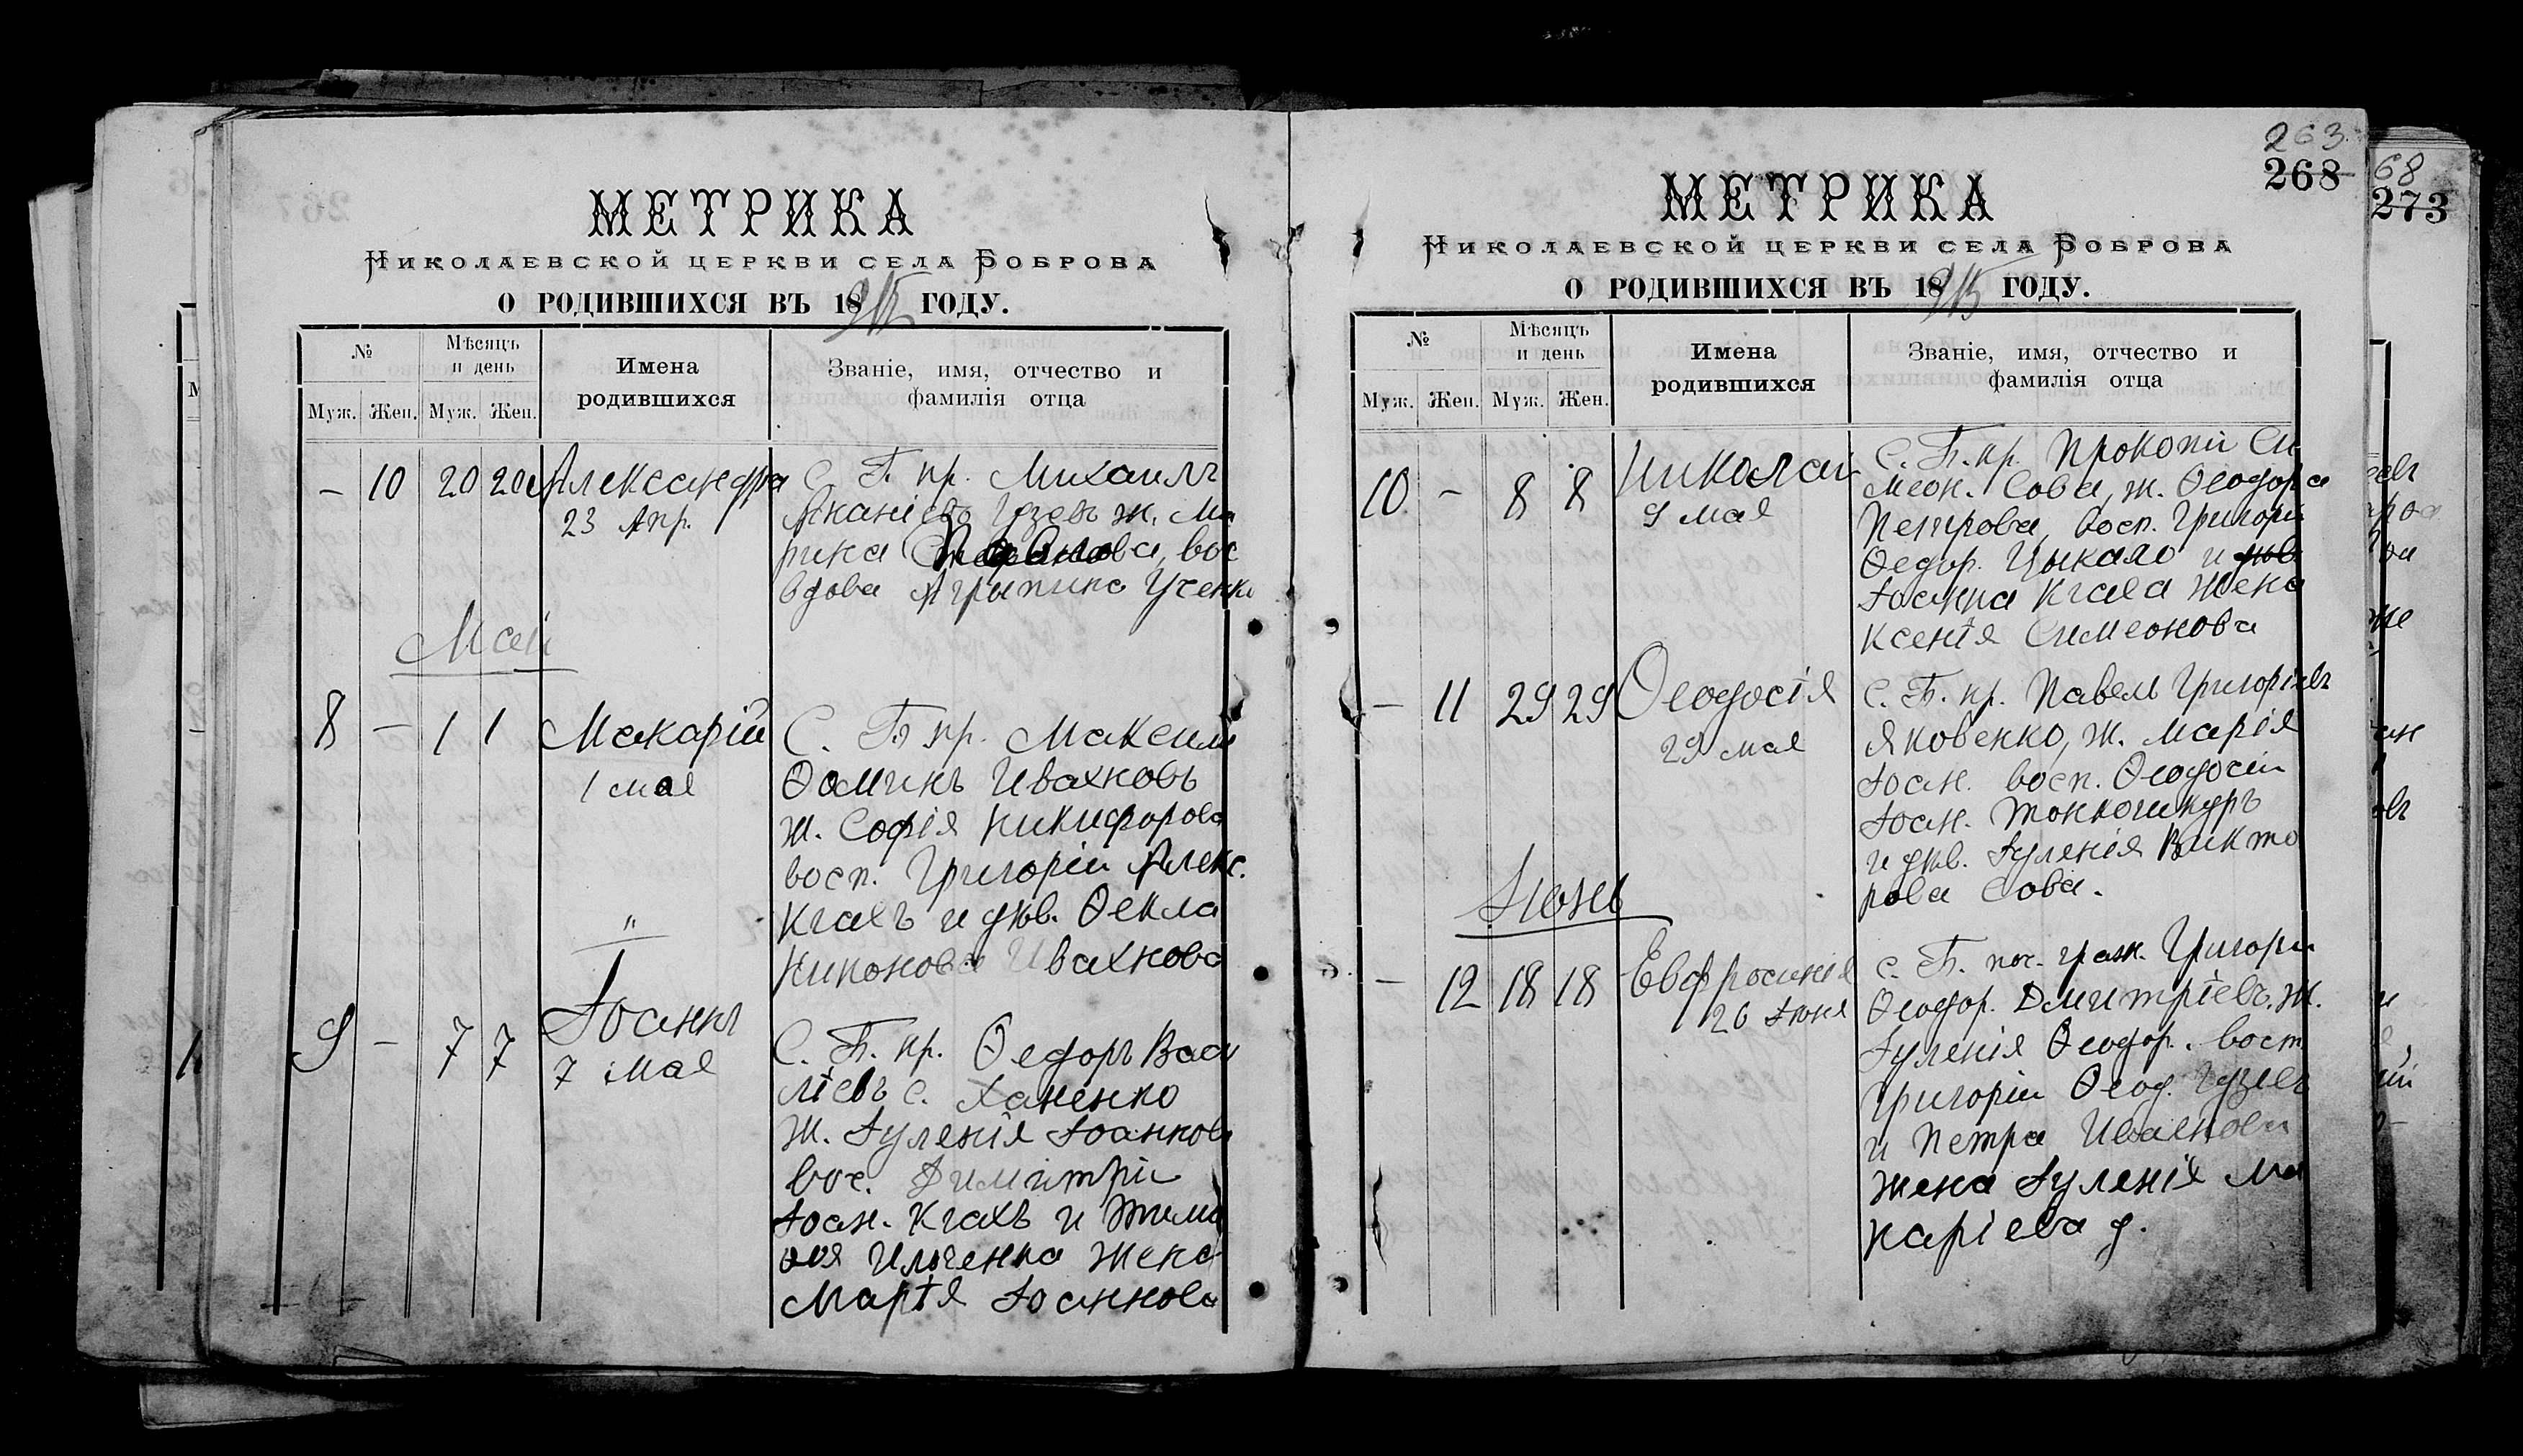 МЕТРИКА
Николаевской церкви села Боброва
О РОДИВШИХСЯ ВЪ 18915 ГОДУ.
№
Мѣсяцъ и день
Имена родившихся
Званіе, имя, отчество и фамилія отца
Муж. Жен. Муж. Жен.
– 10 20 20 Александра
23 Апр.
С. Б. пр. Михаилъ
ж. Ма
рика
вос
вдова Агрипина
Май
8 – 1 1 Макарій
1 мая
С. Б. пр. Максим
Ѳоминъ Ивахновъ
ж. Софія Никифорова
восп. Григорій Алекс.
и дѣв. Ѳекла
Ивахнова
"
9 – 7 7 Іоаннъ
7 мая
С. Б. пр. Ѳедоръ Васи
ліевъ с. Ханенко
ж. Іуленія Іоаннов
вос. Димитрій
Іоан. и Тимо
ѳея Ильченка жена
Марія Іоаннова
263
268
МЕТРИКА
Николаевской церкви села Боброва
О РОДИВШИХСЯ ВЪ 18915 ГОДУ.
№
Мѣсяцъ и день
Имена родившихся
Званіе, имя, отчество и фамилія отца
Муж. Жен. Муж. Жен.
10 – 8 8 Николай
9 мая
С. Б. пр. Прокопій Си
меон. Сова, ж. Ѳеодора
Петрова, восп. Григорій
Ѳедор. Цыкало и
Іоанна жена
Ксенія Симеонова
– 11 29 29 Ѳеодосія
29 мая
С. Б. пр. Павелъ Григоріевъ
Яковенко, ж. Марія
Іоан. восп. Ѳеодосій
Іоан. Тонконикуръ
и дѣв. Іуленія Викто
рова Сова.
Іюнь
– 12 18 18 Евфросинія
20 Іюня
С. Б. поч. граж. Григорій
Ѳеодор. Дмитріевъ. ж.
Іуленія Ѳеодор. восп
Григорій Ѳеод.
и Петра
жена Іуленія Ма
каріева д.
68
273